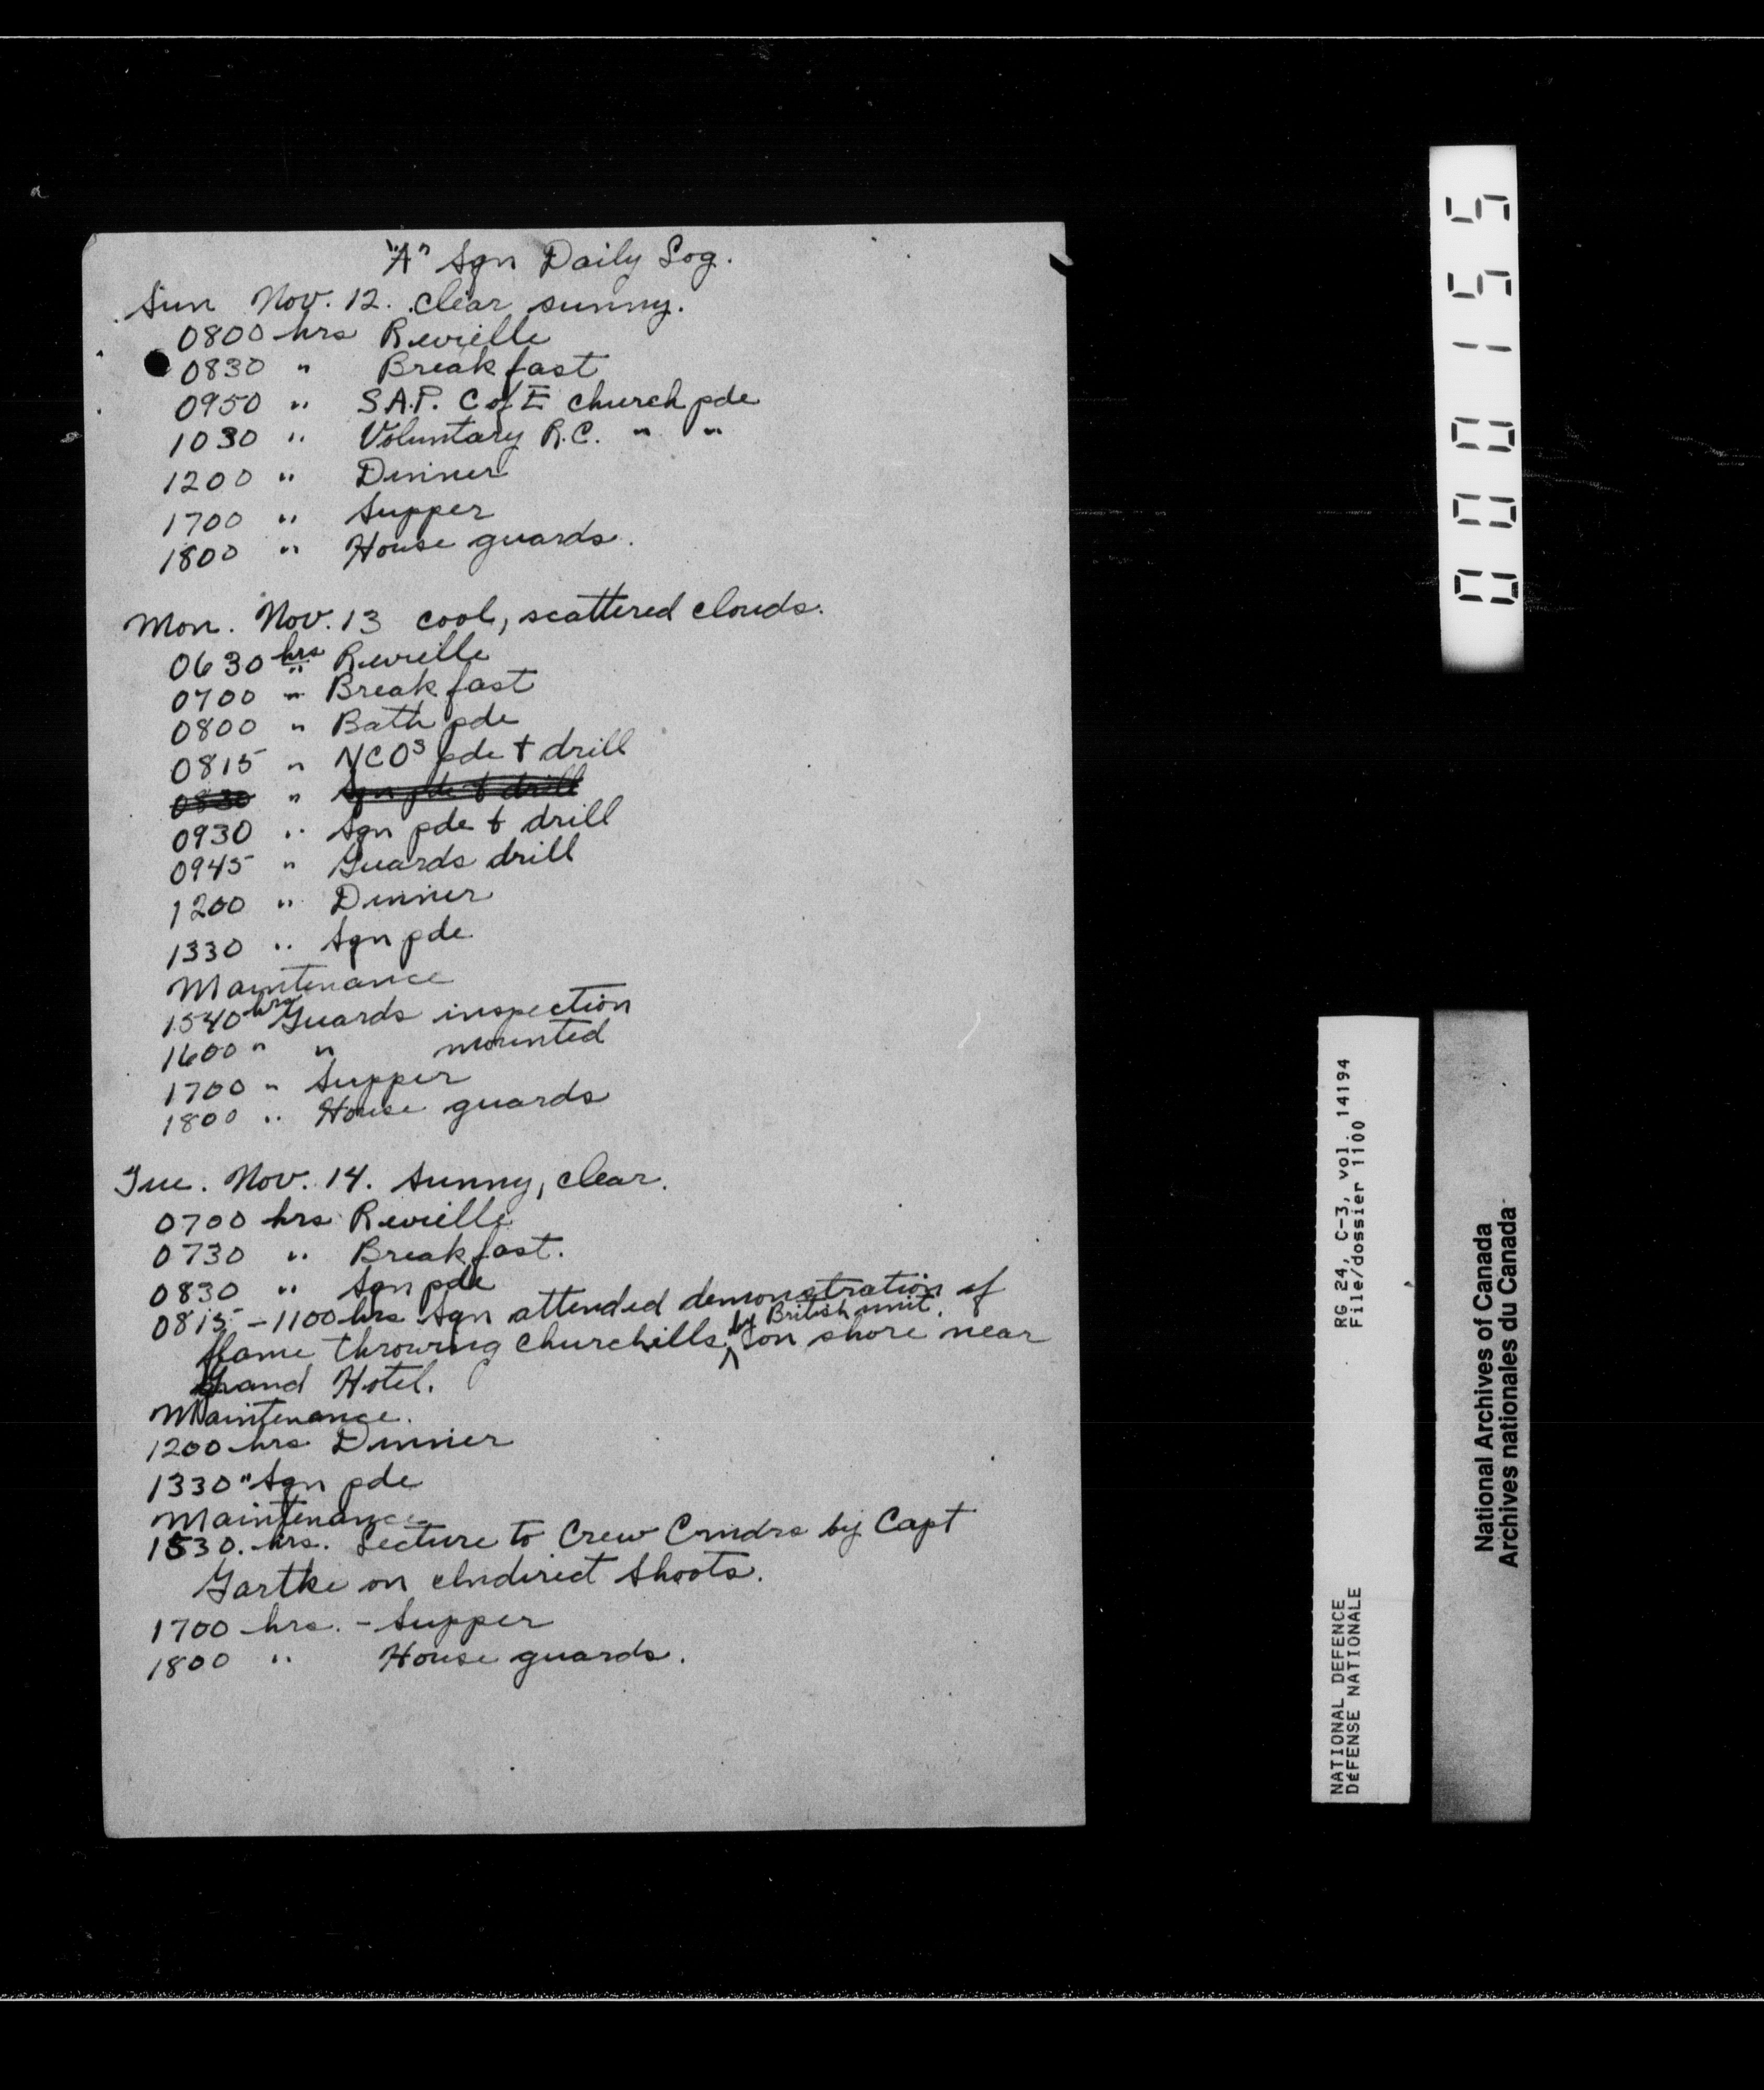 "A" Sqn Daily Log.
Sun Nov. 12. clear sunny.
0800 hrs Revielle
0830 " Breakfast
0950 " S.A.P. C of E church pde
1030 " Voluntary R.C. " "
1200 " Dinner
1700 " Supper
1800 " House guards.
Mon. Nov. 13 cool, scattered clouds.
0630 hrs Revielle
0700 " Breakfast
0800 " Bath pde
0815 " NCOs pde & drill
0830 " Sqn pde & drill
0930 " Sqn pde & drill
0945 " Guards drill
1200 " Dinner
1330 " Sqn pde
Maintenance
1540 hrs Guards inspection
1600 " " mounted
1700 " Supper
1800 " House guards
Tue. Nov. 14. Sunny, clear.
0700 hrs Revielle
0730 " Breakfast.
0830 " Sqn pde
0815 - 1100 hrs Sqn attended demonstration of
by British unit.
flame throwing Churchills, on shore near
Grand Hotel.
Maintenance.
1200 hrs Dinner
1330 " Sqn pde
Maintenance
1530. hrs. Lecture to Crew Cmdrs by Capt
Gartke on Indirect Shoots.
1700 hrs. - Supper
1800 " House guards.
00155
RG 24, C-3, vol. 14194
File/dossier 1100
NATIONAL DEFENCE
DÉFENSE NATIONALE
National Archives of Canada
Archives nationales du Canada